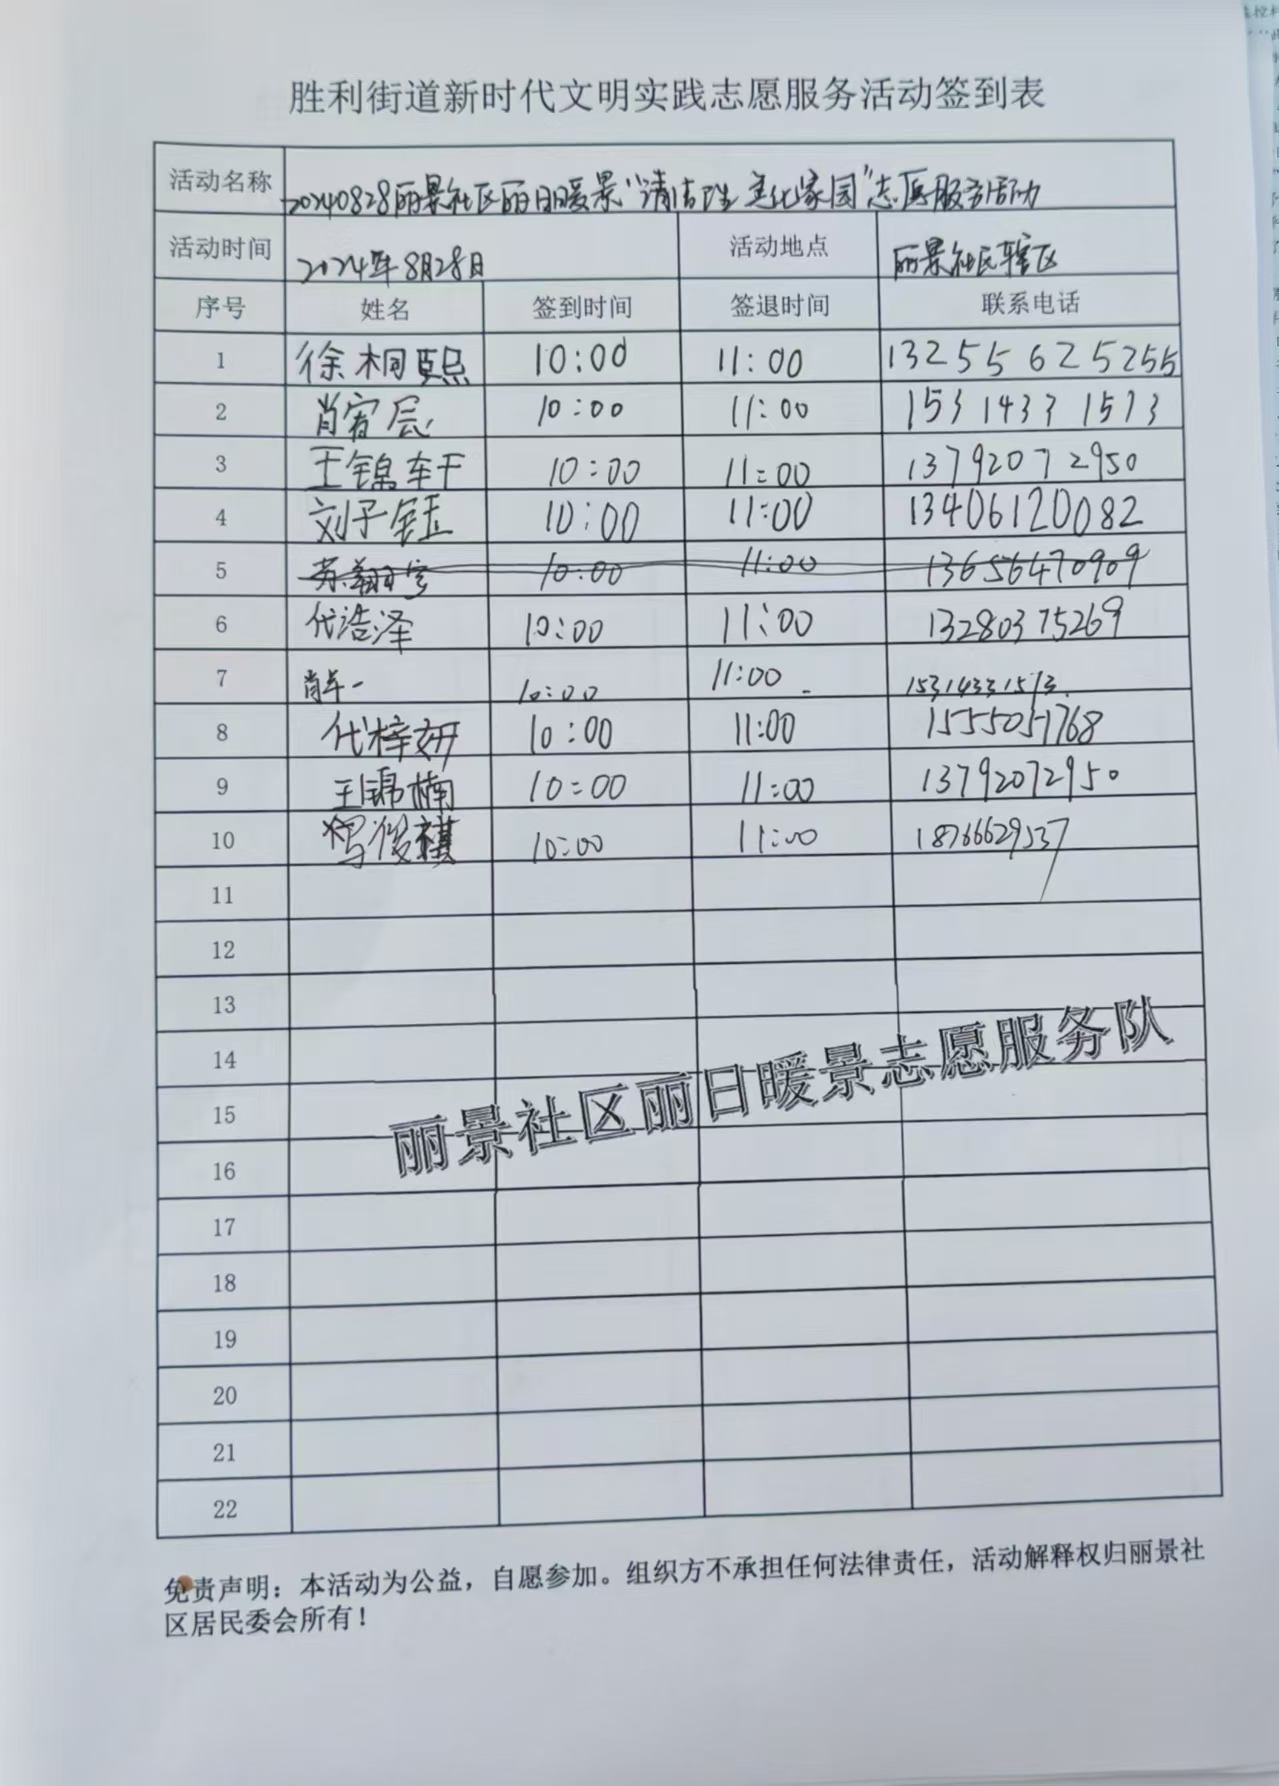 胜利街道新时代文明实践志愿服务活动签到表
活动名称 20240828丽景社区丽日暖景"清洁 美化家园"志愿服务活动
活动时间 2024年8月28日 活动地点 丽景社区辖区
序号 姓名 签到时间 签退时间 联系电话
1 徐桐熙 10:00 11:00 13255625255
2 肖宥辰 10:00 11:00 15314331573
3 王锦轩 10:00 11:00 13792072950
4 刘子钰 10:00 11:00 13406120082
5 苏翔宇 10:00 11:00 13656470909
6 代浩泽 10:00 11:00 13280375269
7 肖一 10:00 11:00 15314331573
8 代梓妍 10:00 11:00 15550551768
9 王锦楠 10:00 11:00 13792072950
10 俊祺 10:00 11:00 18766629537
11
12
13
14
丽景社区丽日暖景志愿服务队
15
16
17
18
19
20
21
22
免责声明：本活动为公益，自愿参加。组织方不承担任何法律责任，活动解释权归丽景社
区居民委会所有！